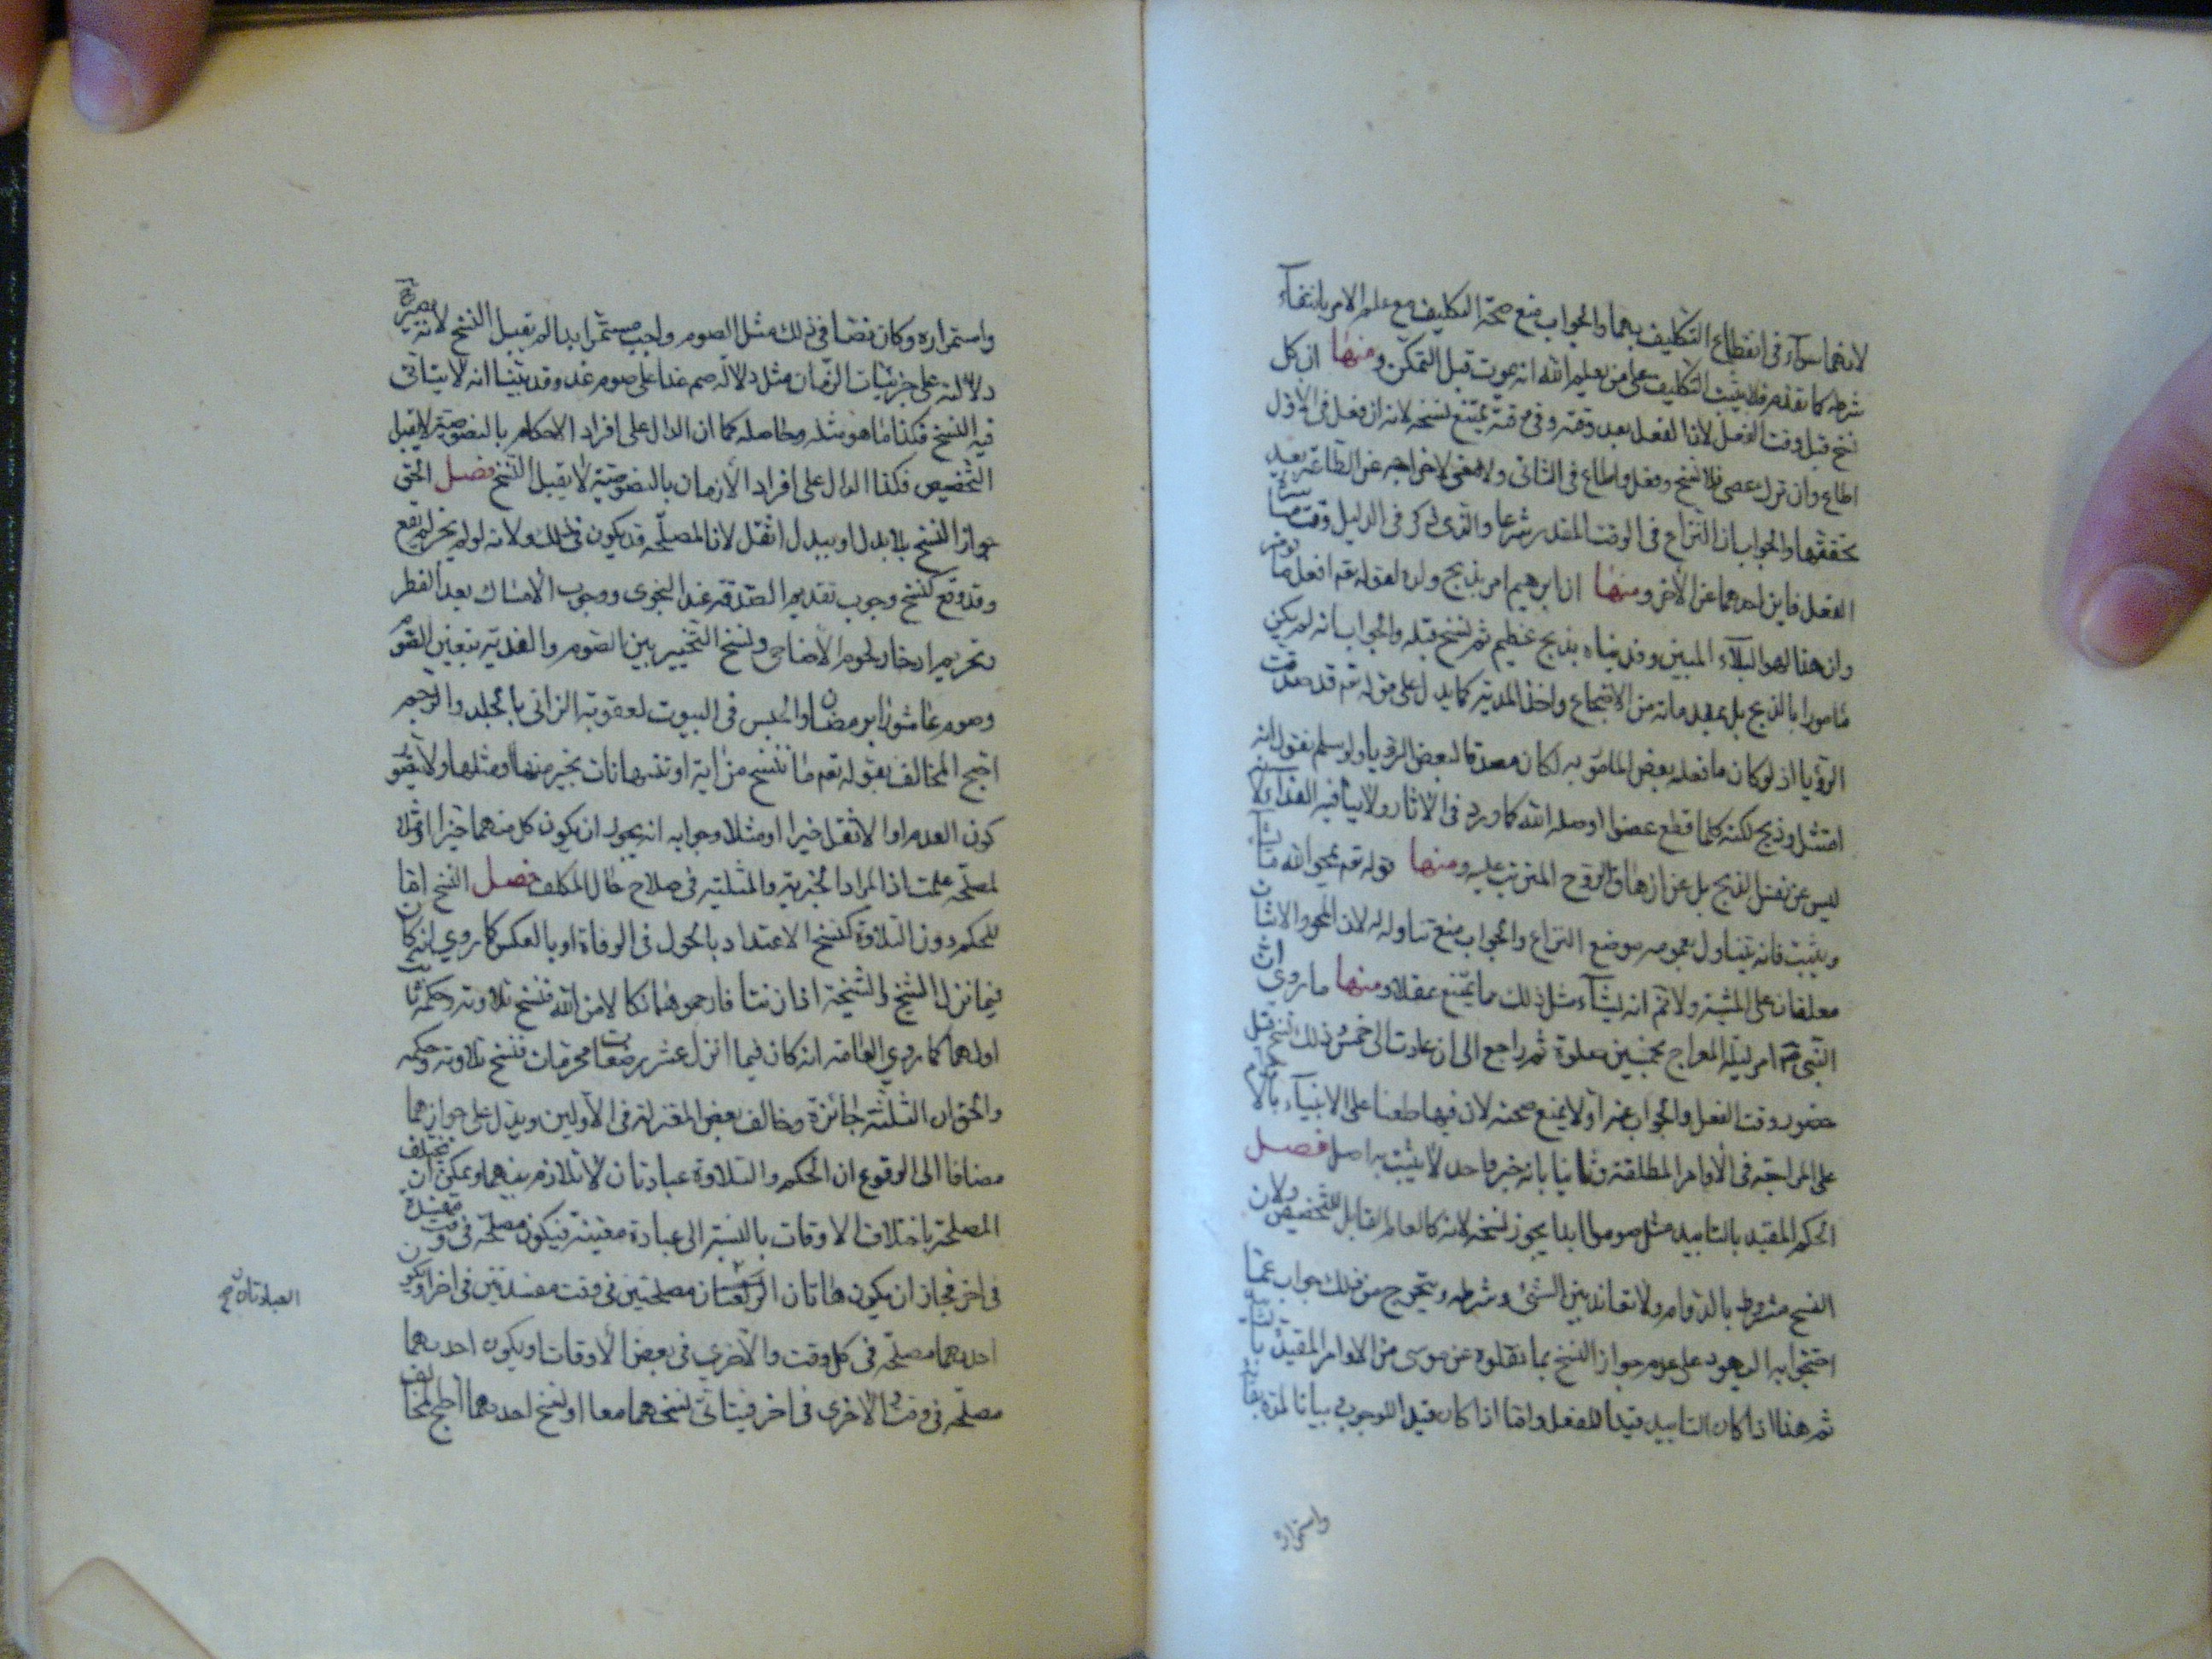 لانهما سوآء فى انقطاع التكليف بهما والجواب منع صحة التكليف مع علم الامر بانتفآء
شرطه كما تقدم فلا يثبت التكليف على من يعلم الله انه يموت قبل التمكن ومنها ان كل
نسخ قبل وقت الفعل لان الفعل بعد وقته وفى وقته يمتنع نسخه لانه ان فعل فى الاول
اطاع وان ترك عصى فلا نسخ وفعل واطاع فى الثانى ولا معنى لاخراجه عن الطاعة بعد
تحققها والجواب ان النزاع فى الوقت المقدر شرعا والذى ذكر فى الدليل وقت مباشرة
الفعل فاين احدهما عن الآخر ومنها ان ابرهيم امر بذبح ولده لقوله تعم افعل ما تؤمر
وان هذا لهو البلآء المبين وفديناه بذبح عظيم ثم نسخ قبله والجواب انه لم يكن
مامورا بالذبح بل بمقدماته من الاضجاع واخذ المدية كما يدل على قوله تعم قد صدقت
الرؤيا اذ لو كان ما فعله بعض المامور به لكان مصدقا لبعض الرؤيا ولو سلم نقول انه
امتثل وذبح لكنه كلما قطع عضوا اوصله الله كما ورد فى الاثار ولا ينافيه الفدآء لانه
ليس عن نفس الذبح بل عن ازهاق الروح المترتب عليه ومنها قوله تعم يمحو الله ما يشآء
ويثبت فانه يتناول بعمومه موضع النزاع والجواب منع تناوله له لان المحو والاثبات
معلقان على المشية ولا نم انه يشآء مثل ذلك مما يمتنع عقلا ومنها ما روى ان
النبى ص امر ليلة المعراج بخمسين صلوة ثم راجع الى ان عادت الى خمس وذلك نسخ قبل
حضور وقت الفعل والجواب عنه اولا بمنع صحته لان فيها طعنا على الانبيآء بالاقدام
على المراجعة فى الاوامر المطلقة وثانيا بانه خبر واحد لا يثبت به اصل فصل
الحكم المقيد بالتابيد مثل صوموا ابدا يجوز نسخه لانه كالعام القابل للتخصيص ولان
النسخ مشروط بالدوام ولا تعاند بين الشئ وشرطه ويتخرج من ذلك جواب عما
احتج به اليهود على عدم جواز النسخ بما نقلوه عن موسى من الاوامر المقيدة بالتابيد
ثم هذا اذا كان التابيد قيدا للفعل واما اذا كان قيدا للوجوب وبيانا لمدة بقائه
واستمراره
واستمراره وكان نصا فى ذلك مثل الصوم واجب مستمر ابدا لم يقبل النسخ لانه يصير
دلالته على جزئيات الزمان مثل دلالة صم غدا على صوم غد وقد بينا انه لا يتاتى
فيه النسخ فكذا ما هو مثله وحاصله كما ان الدال على افراد الاحكام بالنصوصية لا يقبل
التخصيص فكذا الدال على افراد الازمان بالنصوصية لا يقبل النسخ فصل الحق
جواز النسخ بلا بدل او ببدل اثقل لان المصلحة قد يكون فى ذلك ولانه لو لم يجز لم يقع
وقد وقع كنسخ وجوب تقديم الصدقة عند النجوى ووجوب الامساك بعد الفطر
وتحريم ادخار لحوم الاضاحى ونسخ التخيير بين الصوم والفدية بتعيين الصوم
وصوم عاشورا برمضان والحبس فى البيوت لعقوبة الزانى بالجلد والرجم
احتج المخالف بقوله تعم ما ننسخ من اية او ننسها نات بخير منها او مثلها ولا يتصور
كون العدم او الاثقل خيرا او مثلا وجوابه انه يجوز ان يكون كل منهما خيرا او مثلا
لمصلحة علمت اذ المراد الخيرية والمثلية فى صلاح حال المكلف فصل النسخ اما
للحكم دون التلاوة كنسخ الاعتداد بالحول فى الوفاة او بالعكس كما روى انه كان
فيما نزل الشيخ والشيخة اذا زنيا فارجموهما نكالا من الله فنسخ تلاوته وحكمه ثابت
او لهما كما روى العامة انه كان فيما انزل عشر رضعات محرمات فنسخ تلاوته وحكمه
والحق ان الثلثة جائزة وخالف بعض المعتزلة فى الاولين ويدل على جوازهما
مضافا الى الوقوع ان الحكم والتلاوة عبادتان لا تلازم بينهما ويمكن ان يختلف
المصلحة باختلاف الاوقات بالنسبة الى عبادة معينة فيكون مصلحة فى وقت مفسدة
فى اخر فجاز ان يكون هاتان مصلحتين فى وقت مفسدتين فى اخر او يكون
العبادتان صح
احدهما مصلحة فى كل وقت والاخرى فى بعض الاوقات او يكون احدهما
مصلحة فى وقت والاخرى فى اخر فيتاتى نسخهما معا او نسخ احدهما احتج المخالف